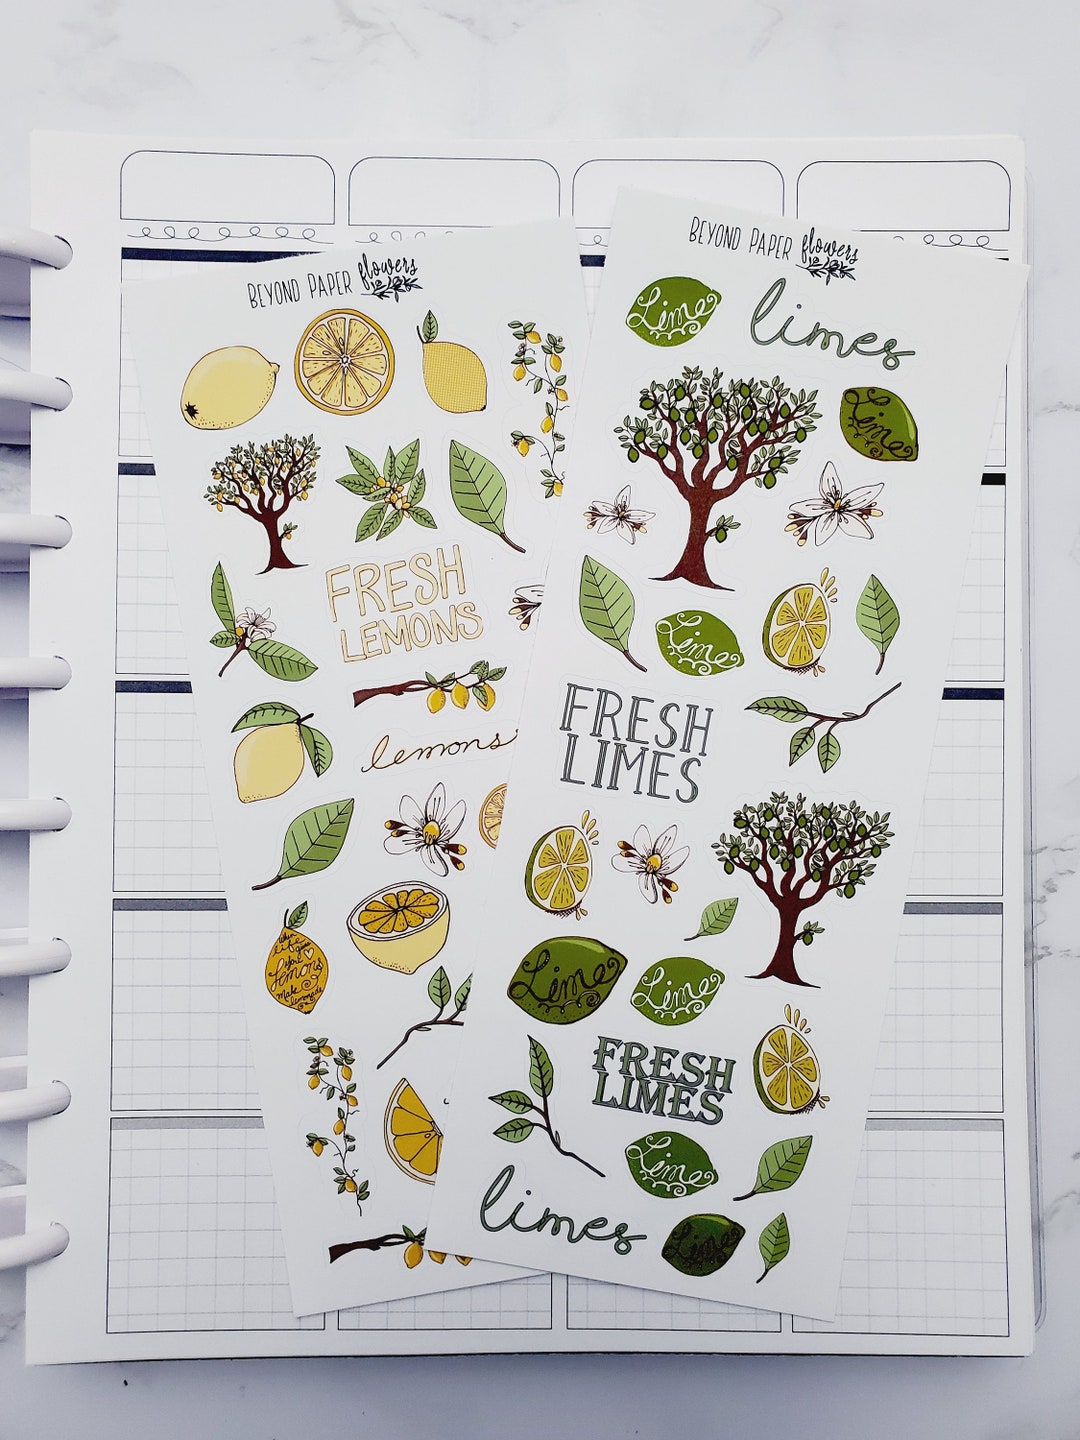 BEYOND PAPER flowers
FRESH
LEMONS
lemons
when
life
gives
you
lemons
make
lemonade
BEYOND PAPER flowers
Lime
limes
Lime
Lime
FRESH
LIMES
Lime
Lime
FRESH
LIMES
Lime
limes
Lime